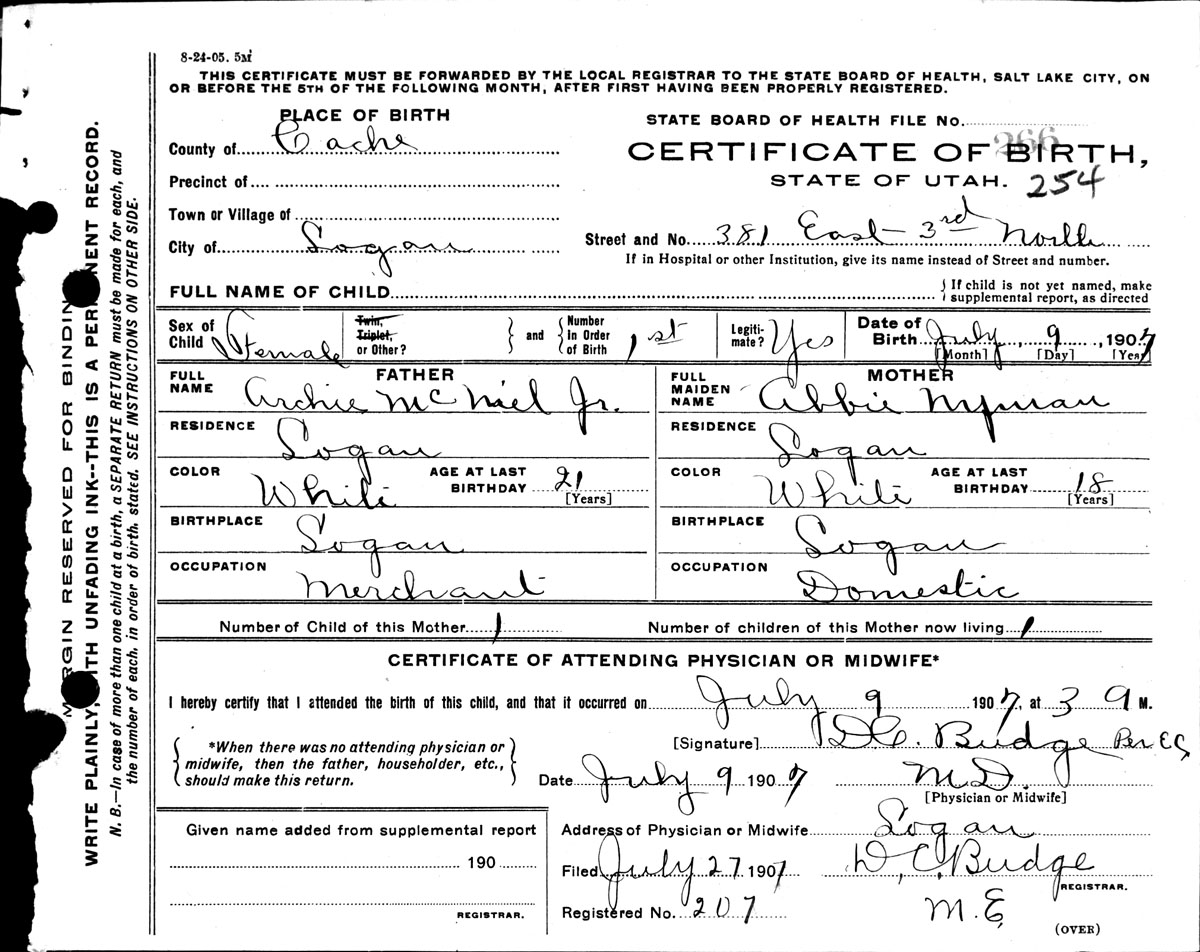 8-24-05. 5M
THIS CERTIFICATE MUST BE FORWARDED BY THE LOCAL REGISTRAR TO THE STATE BOARD OF HEALTH, SALT LAKE CITY, ON
OR BEFORE THE 5TH OF THE FOLLOWING MONTH, AFTER FIRST HAVING BEEN PROPERLY REGISTERED.
PLACE OF BIRTH
County of Cache
Precinct of
Town or Village of
City of Logan
STATE BOARD OF HEALTH FILE No.
266
CERTIFICATE OF BIRTH,
STATE OF UTAH. 254
Street and No. 381 East 3rd North
If in Hospital or other Institution, give its name instead of Street and number.
FULL NAME OF CHILD
{ If child is not yet named, make
supplemental report, as directed
Sex of Child Female
Twin, Triplet, or Other?
and
Number in Order of Birth 1st
Legiti-mate? Yes
Date of Birth July 9, 1907
[Month] [Day] [Year]
FATHER
FULL NAME Archie McNiel Jr.
RESIDENCE Logan
COLOR White AGE AT LAST BIRTHDAY 21 [Years]
BIRTHPLACE Logan
OCCUPATION Merchant
MOTHER
FULL MAIDEN NAME Abbie Nyman
RESIDENCE Logan
COLOR White AGE AT LAST BIRTHDAY 18 [Years]
BIRTHPLACE Logan
OCCUPATION Domestic
Number of Child of this Mother 1 Number of children of this Mother now living 1
CERTIFICATE OF ATTENDING PHYSICIAN OR MIDWIFE*
I hereby certify that I attended the birth of this child, and that it occurred on July 9 1907, at 3 a M.
*When there was no attending physician or
midwife, then the father, householder, etc.,
should make this return.
[Signature] D.C. Budge Per
Date July 9 1907 M.D.
[Physician or Midwife]
Given name added from supplemental report
190
REGISTRAR.
Address of Physician or Midwife Logan
Filed July 27 1907 D.C. Budge
REGISTRAR.
Registered No. 207 M.E.
(OVER)
MARGIN RESERVED FOR BINDING
WRITE PLAINLY, WITH UNFADING INK--THIS IS A PERMANENT RECORD.
N. B.—In case of more than one child at a birth, a SEPARATE RETURN must be made for each, and
the number of each, in order of birth, stated. SEE INSTRUCTIONS ON OTHER SIDE.